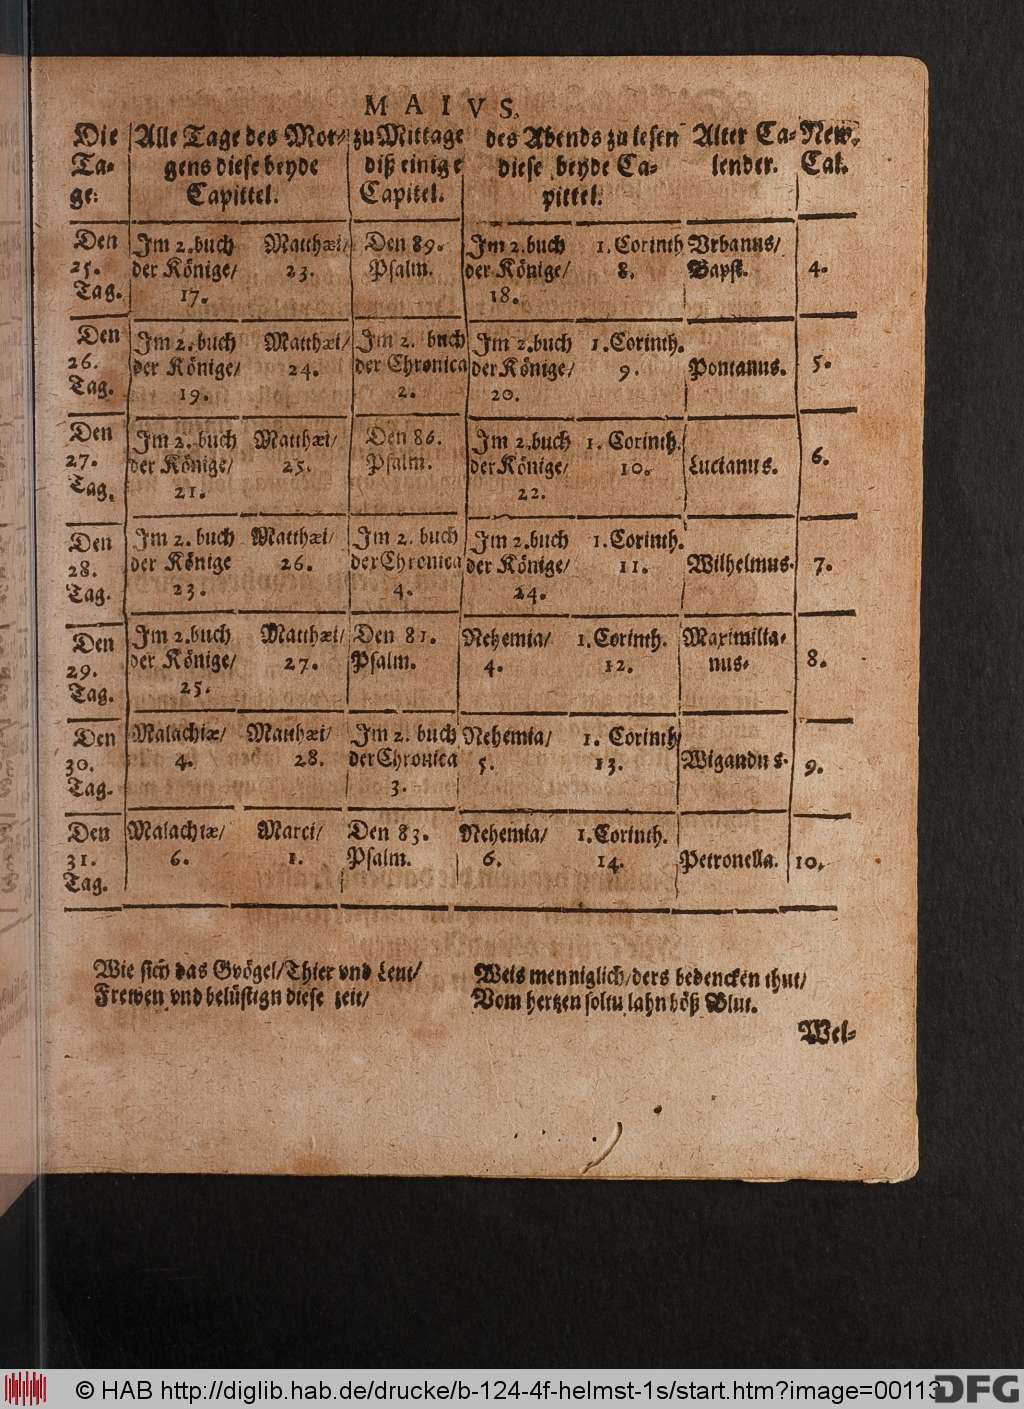 MAIVS.
Die Alle Tage des Mor- zu Mittage des Abends zu lesen Alter Ca- New.
Ta- gens diese beyde diß einige diese beyde Ca- lender. Cal.
ge: Capittel. Capitel. pittel.
Den Im 2. buch Matthæi/ Den 89. Im 2. buch 1. Corinth Vrbanus/
25. der Könige/ 23. Psalm. der Könige/ 8. Bapst. 4.
Tag. 17. 18.
Den Im 2. buch Matthæi/ Im 2. buch Im 2. buch 1. Corinth.
26. der Könige/ 24. der Chronica der Könige/ 9. Pontanus. 5.
Tag. 19. 2. 20.
Den Im 2. buch Matthæi/ Den 86. Im 2. buch 1. Corinth.
27. der Könige/ 25. Psalm. der Könige/ 10. Lucianus. 6.
Tag. 21. 22.
Den Im 2. buch Matthæi/ Im 2. buch Im 2. buch 1. Corinth.
28. der Könige 26. der Chronica der Könige/ 11. Wilhelmus. 7.
Tag. 23. 4. 24.
Den Im 2. buch Matthæi/ Den 81. Nehemia/ 1. Corinth. Maximilia-
29. der Könige/ 27. Psalm. 4. 12. nus. 8.
Tag. 25.
Den Malachiæ/ Matthæi/ Im 2. buch Nehemia/ 1. Corinth/
30. 4. 28. der Chronica 5. 13. Wigandus. 9.
Tag. 3.
Den Malachiæ/ Marci/ Den 83. Nehemia/ 1. Corinth.
31. 6. 1. Psalm. 6. 14. Petronella. 10.
Tag.
Wie sich das Gvögel/ Thier vnd Leut/
Frewen vnd belüstign diese zeit/
Weis menniglich/ ders bedencken thut/
Vom hertzen soltu lahn böß Blut.
Wel-
© HAB http://diglib.hab.de/drucke/b-124-4f-helmst-1s/start.htm?image=00113
DFG